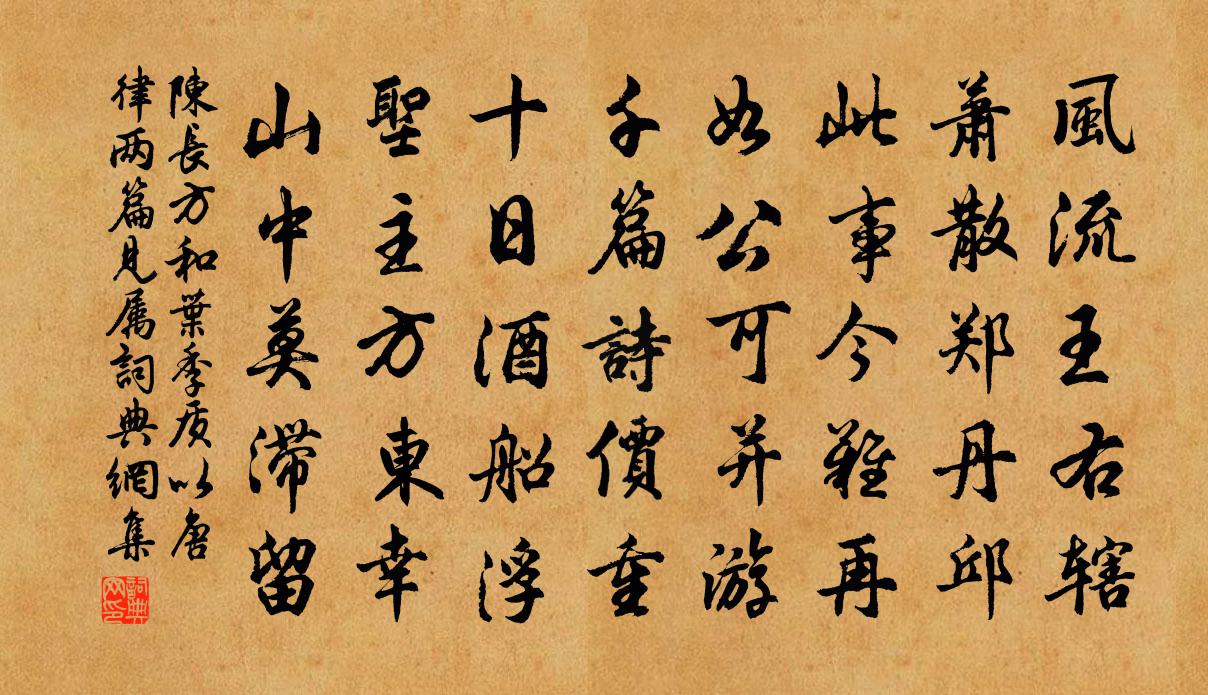 風流王右辖
萧散郑丹邱
此事今難再
如公可并游
千篇詩價重
十日酒船浮
聖主方東幸
山中莫滞留
陳長方和葉季质以唐
律两篇見属詞典網集
詞典网印